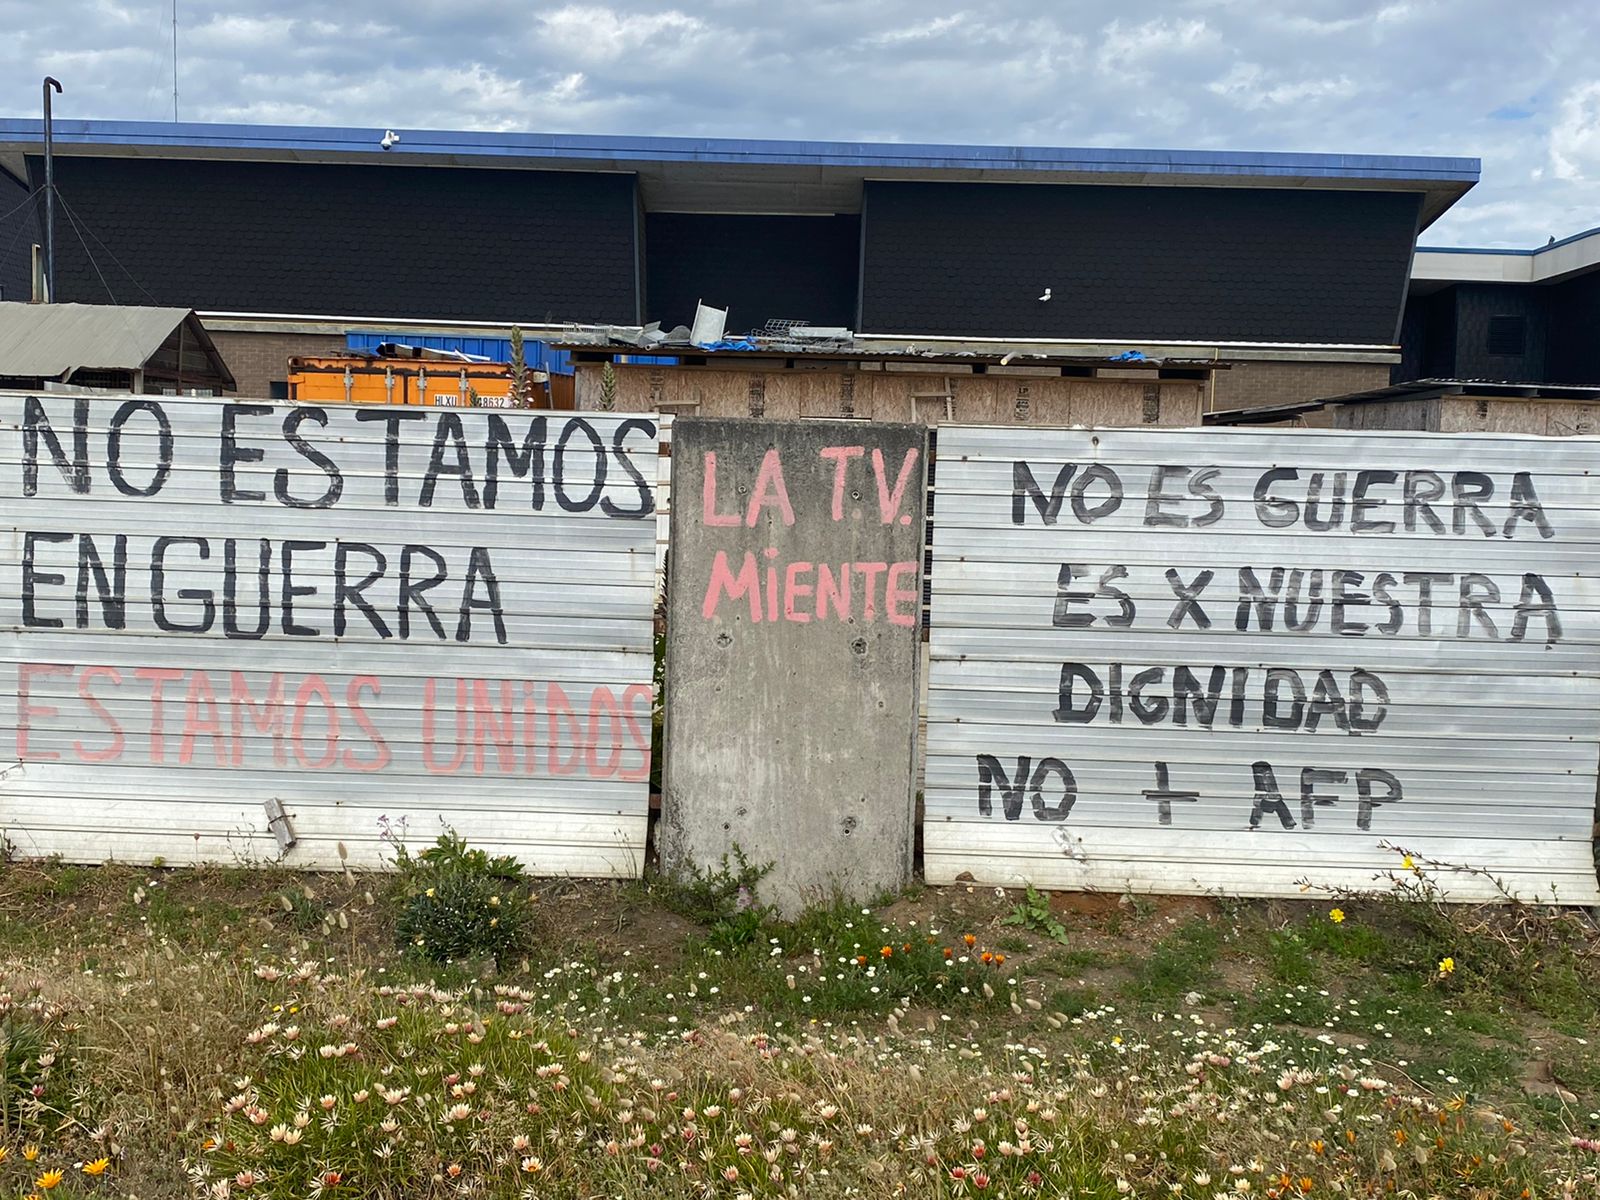 HLXU 8632
NO ESTAMOS
EN GUERRA
ESTAMOS UNIDOS
LA T.V.
MIENTE
NO ES GUERRA
ES X NUESTRA
DIGNIDAD
NO + AFP